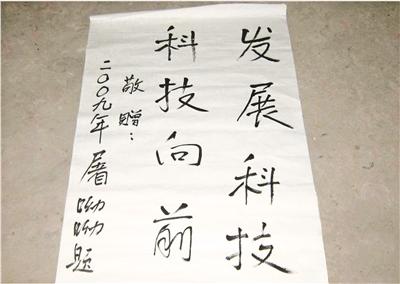 发展科技
科技向前
敬赠：
二〇〇九年屠呦呦题